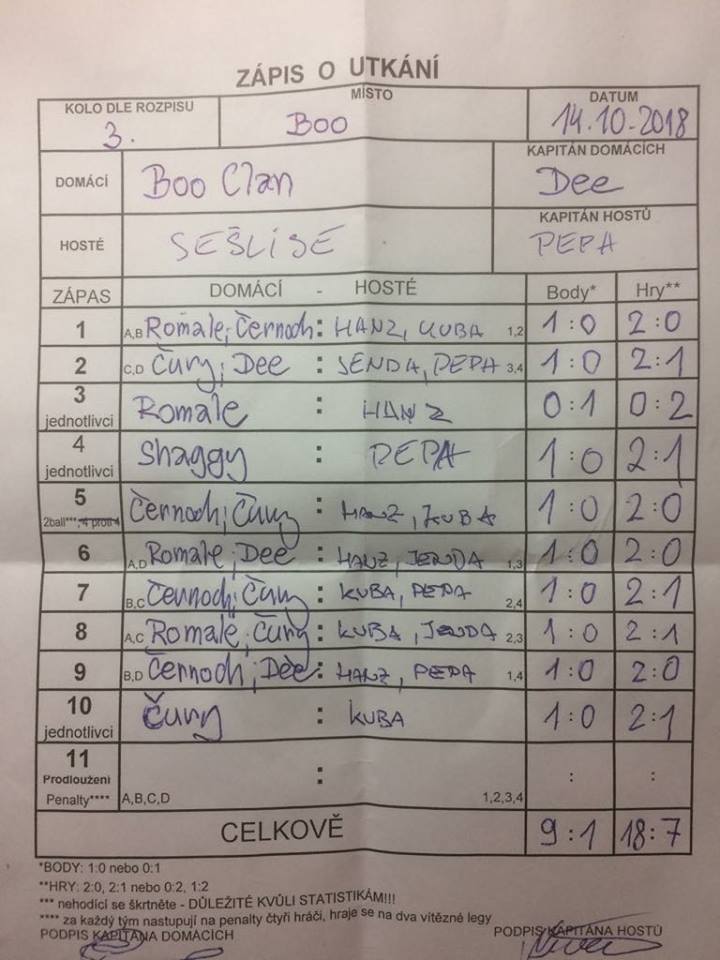 ZÁPIS O UTKÁNÍ
KOLO DLE ROZPISU MÍSTO DATUM
3. Boo 14.10.2018
DOMÁCÍ Boo Clan KAPITÁN DOMÁCÍCH Dee
HOSTÉ SEŠLISE KAPITÁN HOSTŮ PEPA
ZÁPAS DOMÁCÍ - HOSTÉ Body* Hry**
1 A,B Romale; Černoch : HANZ, KUBA 1,2 1:0 2:0
2 C,D Čury; Dee : JENDA, PEPA 3,4 1:0 2:1
3 jednotlivci Romale : HANZ 0:1 0:2
4 jednotlivci Shaggy : PEPA 1:0 2:1
5 2ball***, 4 proti 4 Černoch; Čury : HANZ, KUBA 1:0 2:0
6 A,D Romale; Dee : HANZ, JENDA 1,3 1:0 2:0
7 B,C Černoch; Čury : KUBA, PEPA 2,4 1:0 2:1
8 A,C Romale; Čury : KUBA, JENDA 2,3 1:0 2:1
9 B,D Černoch; Dee : HANZ, PEPA 1,4 1:0 2:0
10 jednotlivci Čury : KUBA 1:0 2:1
11 Prodloužení Penalty**** A,B,C,D : 1,2,3,4 : :
CELKOVĚ 9:1 18:7
*BODY: 1:0 nebo 0:1
**HRY: 2:0, 2:1 nebo 0:2, 1:2
*** nehodící se škrtněte - DŮLEŽITÉ KVŮLI STATISTIKÁM!!!
**** za každý tým nastupují na penalty čtyři hráči, hraje se na dva vítězné legy
PODPIS KAPITÁNA DOMÁCÍCH PODPIS KAPITÁNA HOSTŮ